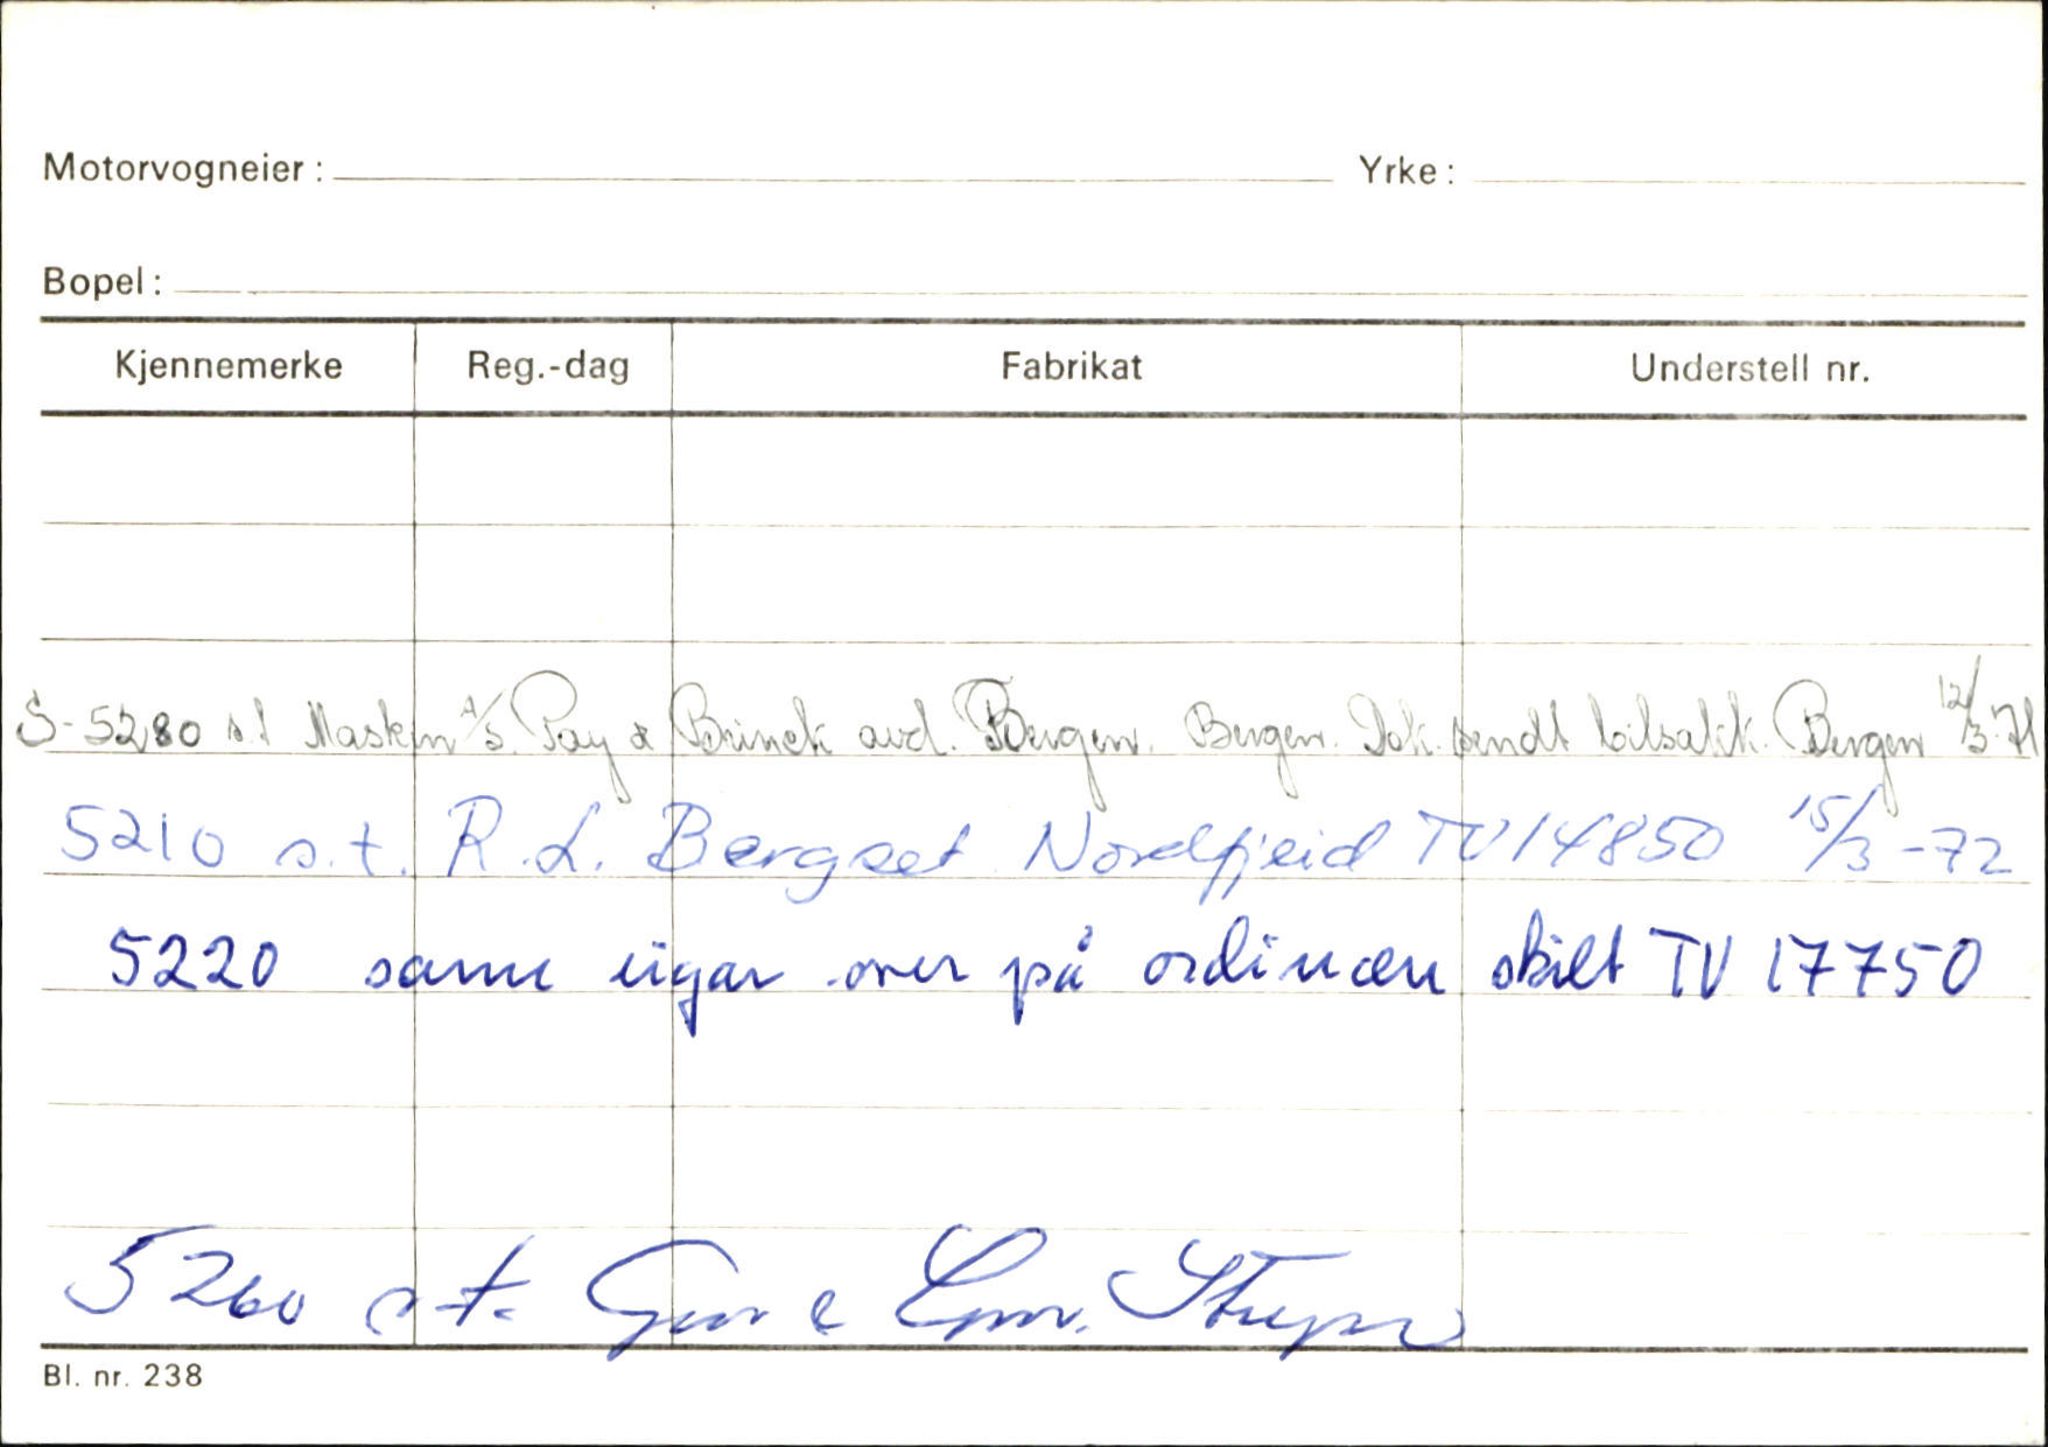 Motorvogneier: Yrke:
Bopel:
Kjennemerke Reg.-dag Fabrikat Understell nr.
S-5280 s.t Maskin A/s. Pay & Brinck avd. Bergen. Bergen. Dok. sendt bilsakk. Bergen 12/3-71
5210 s.t. R.L. Bergset Nordfjeid TV14850 15/3-72
5220 same eigar over på ordinær skilt TV 17750
5260 s.t.
Bl. nr. 238